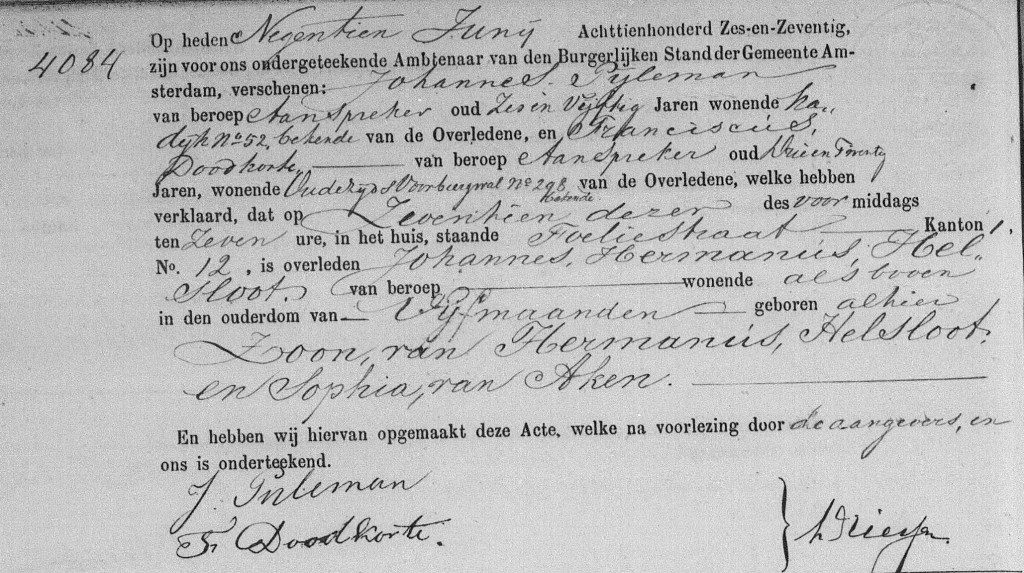 Op heden Negentien Junij Achttienhonderd Zes-en-Zeventig,
4084
zijn voor ons ondergeteekende Ambtenaar van den Burgerlijken Stand der Gemeente Am-
sterdam, verschenen: Johannes Pijleman
van beroep Aanspreker oud Zes en Vijftig Jaren wonende Ka-
dijk No 52, bekende van de Overledene, en Franciscus,
Doodkorte, van beroep Aanspreker oud Drie en Twentig
Jaren, wonende Oudezyds Voorburgwal No 298 bekende van de Overledene, welke hebben
verklaard, dat op Zeventien dezer des voor middags
ten Zeven ure, in het huis, staande Foeliestraat Kanton 1,
No. 12, is overleden Johannes, Hermanus, Hel-
sloot. van beroep wonende als boven
in den ouderdom van Vijf maanden geboren alhier
Zoon, van Hermanus, Helsloot,
en Sophia, van Aken.
En hebben wij hiervan opgemaakt deze Acte, welke na voorlezing door de aangevers, en
ons is onderteekend.
J. Pijleman
F. Doodkorte.